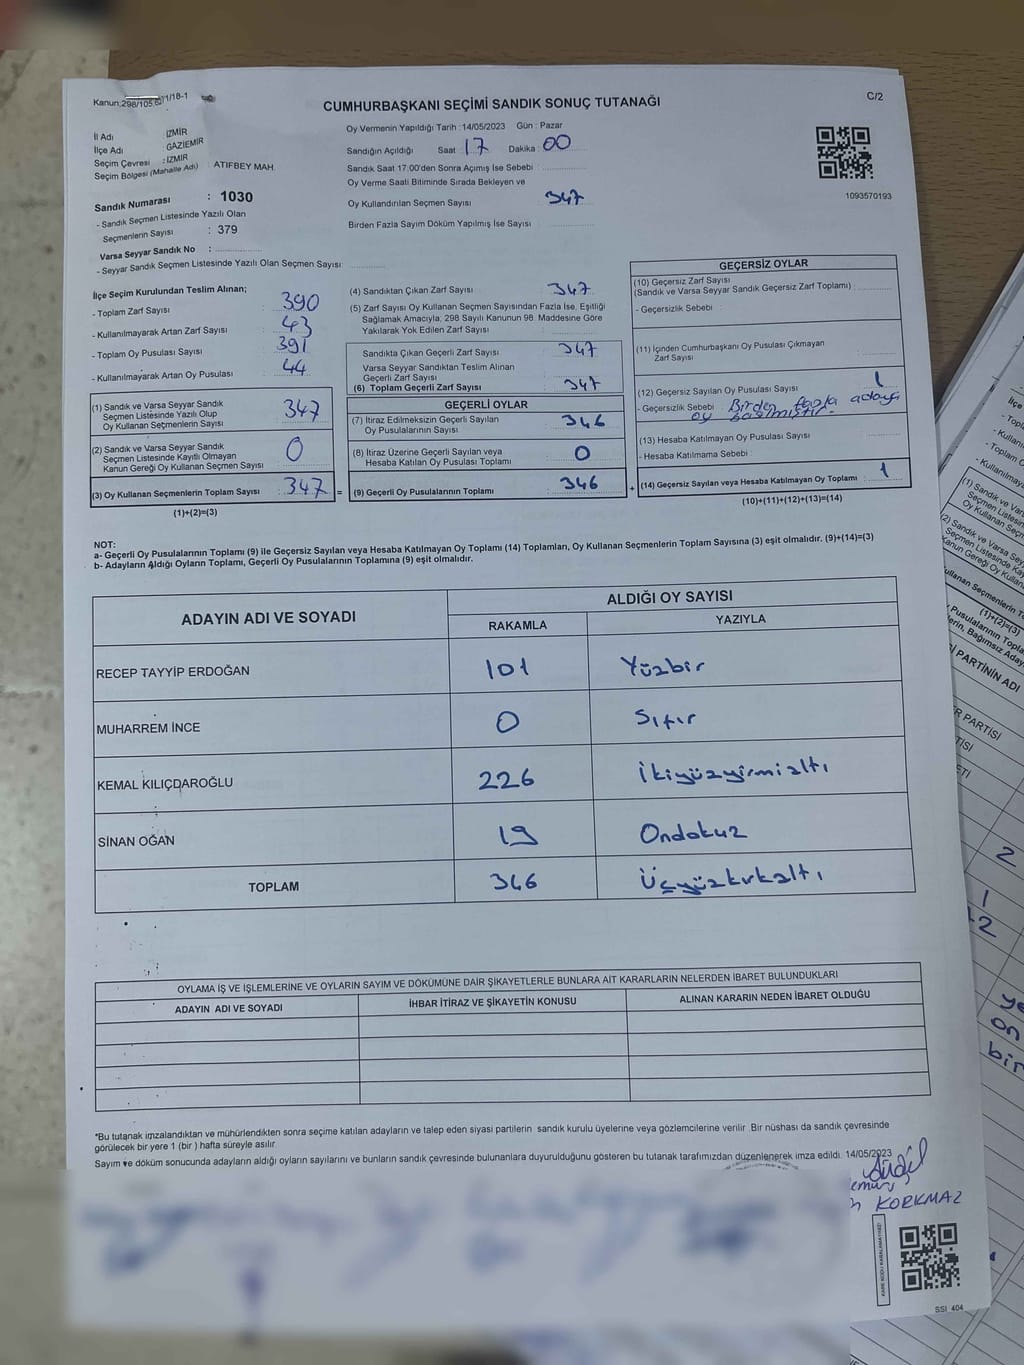 Kanun:298/105,6271/18-1
CUMHURBAŞKANI SEÇİMİ SANDIK SONUÇ TUTANAĞI
C/2
İl Adı İZMİR
İlçe Adı GAZİEMİR
Seçim Çevresi : İZMİR
Seçim Bölgesi (Mahalle Adı) : ATIFBEY MAH.
Sandık Numarası : 1030
- Sandık Seçmen Listesinde Yazılı Olan
Seçmenlerin Sayısı : 379
Varsa Seyyar Sandık No :
- Seyyar Sandık Seçmen Listesinde Yazılı Olan Seçmen Sayısı
Oy Vermenin Yapıldığı Tarih : 14/05/2023 Gün : Pazar
Sandığın Açıldığı Saat : 17 Dakika : 00
Sandık Saat 17:00'den Sonra Açımış İse Sebebi :
Oy Verme Saati Bitiminde Sırada Bekleyen ve
Oy Kullandırılan Seçmen Sayısı 347
Birden Fazla Sayım Döküm Yapılmış İse Sayısı
1093570193
İlçe Seçim Kurulundan Teslim Alınan;
- Toplam Zarf Sayısı 390
- Kullanılmayarak Artan Zarf Sayısı 43
- Toplam Oy Pusulası Sayısı 391
- Kullanılmayarak Artan Oy Pusulası 44
(1) Sandık ve Varsa Seyyar Sandık
Seçmen Listesinde Yazılı Olup
Oy Kullanan Seçmenlerin Sayısı 347
(2) Sandık ve Varsa Seyyar Sandık
Seçmen Listesinde Kayıtlı Olmayan
Kanun Gereği Oy Kullanan Seçmen Sayısı 0
(3) Oy Kullanan Seçmenlerin Toplam Sayısı 347 =
(1)+(2)=(3)
(4) Sandıktan Çıkan Zarf Sayısı 347
(5) Zarf Sayısı Oy Kullanan Seçmen Sayısından Fazla İse, Eşitliği
Sağlamak Amacıyla, 298 Sayılı Kanunun 98. Maddesine Göre
Yakılarak Yok Edilen Zarf Sayısı
Sandıkta Çıkan Geçerli Zarf Sayısı 347
Varsa Seyyar Sandıktan Teslim Alınan
Geçerli Zarf Sayısı
(6) Toplam Geçerli Zarf Sayısı 347
GEÇERLİ OYLAR
(7) İtiraz Edilmeksizin Geçerli Sayılan
Oy Pusulalarının Sayısı 346
(8) İtiraz Üzerine Geçerli Sayılan veya
Hesaba Katılan Oy Pusulası Toplamı 0
(9) Geçerli Oy Pusulalarının Toplamı 346 +
GEÇERSİZ OYLAR
(10) Geçersiz Zarf Sayısı
(Sandık ve Varsa Seyyar Sandık Geçersiz Zarf Toplamı) :
- Geçersizlik Sebebi :
(11) İçinden Cumhurbaşkanı Oy Pusulası Çıkmayan
Zarf Sayısı
(12) Geçersiz Sayılan Oy Pusulası Sayısı 1
- Geçersizlik Sebebi : Birden fazla adaya
oy basmıştır.
(13) Hesaba Katılmayan Oy Pusulası Sayısı
- Hesaba Katılmama Sebebi :
(14) Geçersiz Sayılan veya Hesaba Katılmayan Oy Toplamı : 1
(10)+(11)+(12)+(13)=(14)
NOT:
a- Geçerli Oy Pusulalarının Toplamı (9) ile Geçersiz Sayılan veya Hesaba Katılmayan Oy Toplamı (14) Toplamları, Oy Kullanan Seçmenlerin Toplam Sayısına (3) eşit olmalıdır. (9)+(14)=(3)
b- Adayların Aldığı Oyların Toplamı, Geçerli Oy Pusulalarının Toplamına (9) eşit olmalıdır.
ADAYIN ADI VE SOYADI
ALDIĞI OY SAYISI
RAKAMLA YAZIYLA
RECEP TAYYİP ERDOĞAN 101 Yüzbir
MUHARREM İNCE 0 Sıfır
KEMAL KILIÇDAROĞLU 226 İkiyüzyirmialtı
SİNAN OĞAN 19 Ondokuz
TOPLAM 346 Üçyüzkırkaltı
OYLAMA İŞ VE İŞLEMLERİNE VE OYLARIN SAYIM VE DÖKÜMÜNE DAİR ŞİKAYETLERLE BUNLARA AİT KARARLARIN NELERDEN İBARET BULUNDUKLARI
ADAYIN ADI VE SOYADI İHBAR İTİRAZ VE ŞİKAYETİN KONUSU ALINAN KARARIN NEDEN İBARET OLDUĞU
*Bu tutanak imzalandıktan ve mühürlendikten sonra seçime katılan adayların ve talep eden siyasi partilerin sandık kurulu üyelerine veya gözlemcilerine verilir. Bir nüshası da sandık çevresinde
görülecek bir yere 1 (bir ) hafta süreyle asılır.
Sayım ve döküm sonucunda adayların aldığı oyların sayılarını ve bunların sandık çevresinde bulunanlara duyurulduğunu gösteren bu tutanak tarafımızdan düzenlenerek imza edildi. 14/05/2023
KORKMAZ
SSİ 404